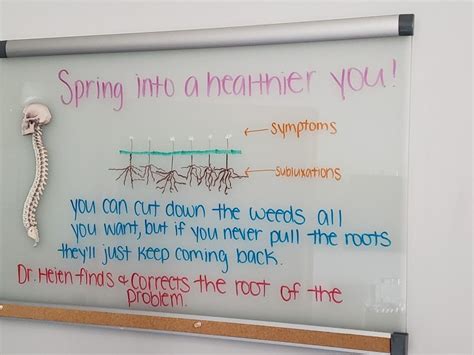 Spring into a healthier you!
← symptoms
← subluxations
you can cut down the weeds all
you want, but if you never pull the roots
they'll just keep coming back.
Dr. Helen finds & corrects the root of the
problem.